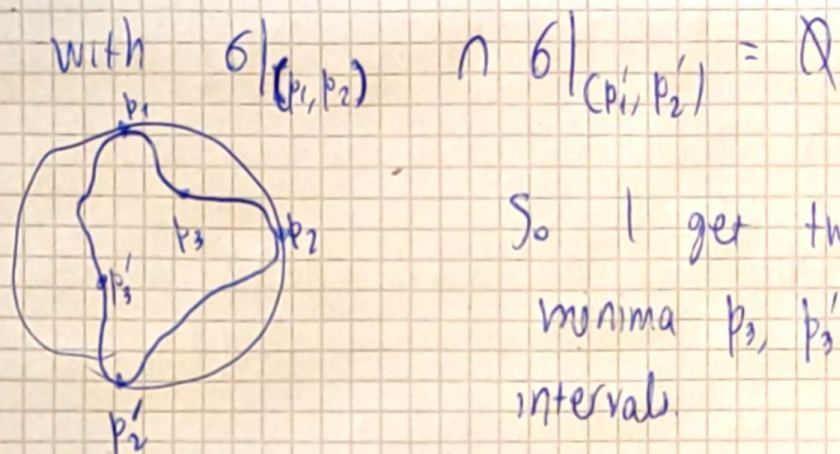 with 6|(p₁,p₂) ∩ 6|(p₁',p₂') = Q
p₁
p₃
p₂
p₃'
p₂'
So I get th
minima p₃, p₃'
intervals.